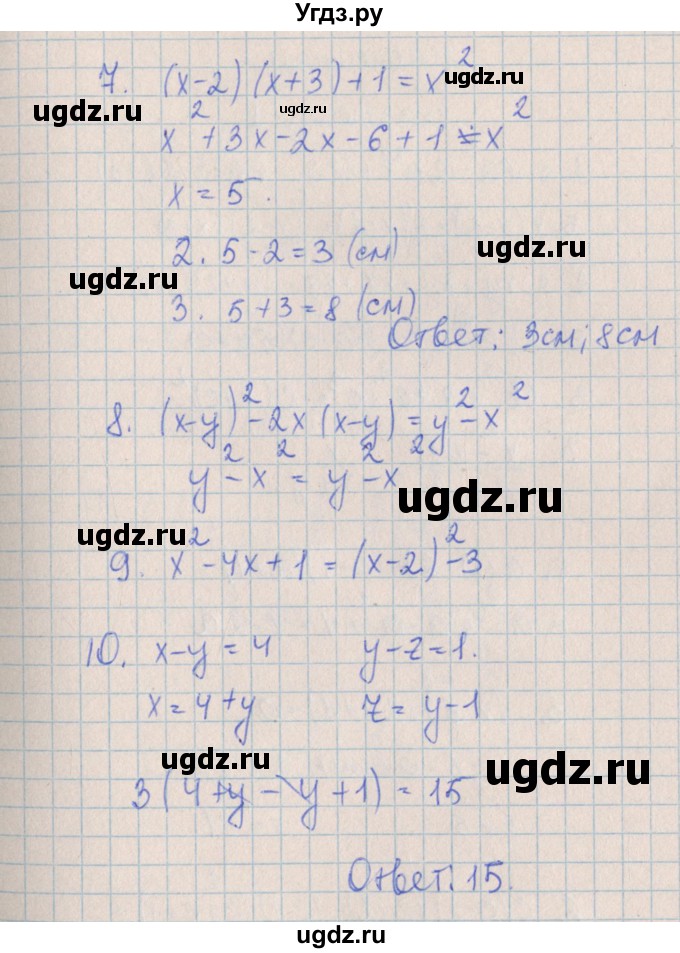 Угдз.ру
7. (x-2)(x+3)+1=x²
ugdz.ru ugdz.ru ugdz.ru
x²+3x-2x-6+1=x²
x=5.
2. 5-2=3 (см)
ugdz.ru
ugdz.ru
3. 5+3=8 (см)
Ответ: 3см; 8см
8. (x-y)²-2x(x-y)=y²-x²
y²-x²=y²-x²
ugdz.ru
ugdz.ru
9. x²-4x+1=(x-2)²-3
10. x-y=4 y-z=1.
x=4+y z=y-1
ugdz.ru ugdz.ru
3(4+y-y+1)=15
Ответ: 15.
ugdz.ru